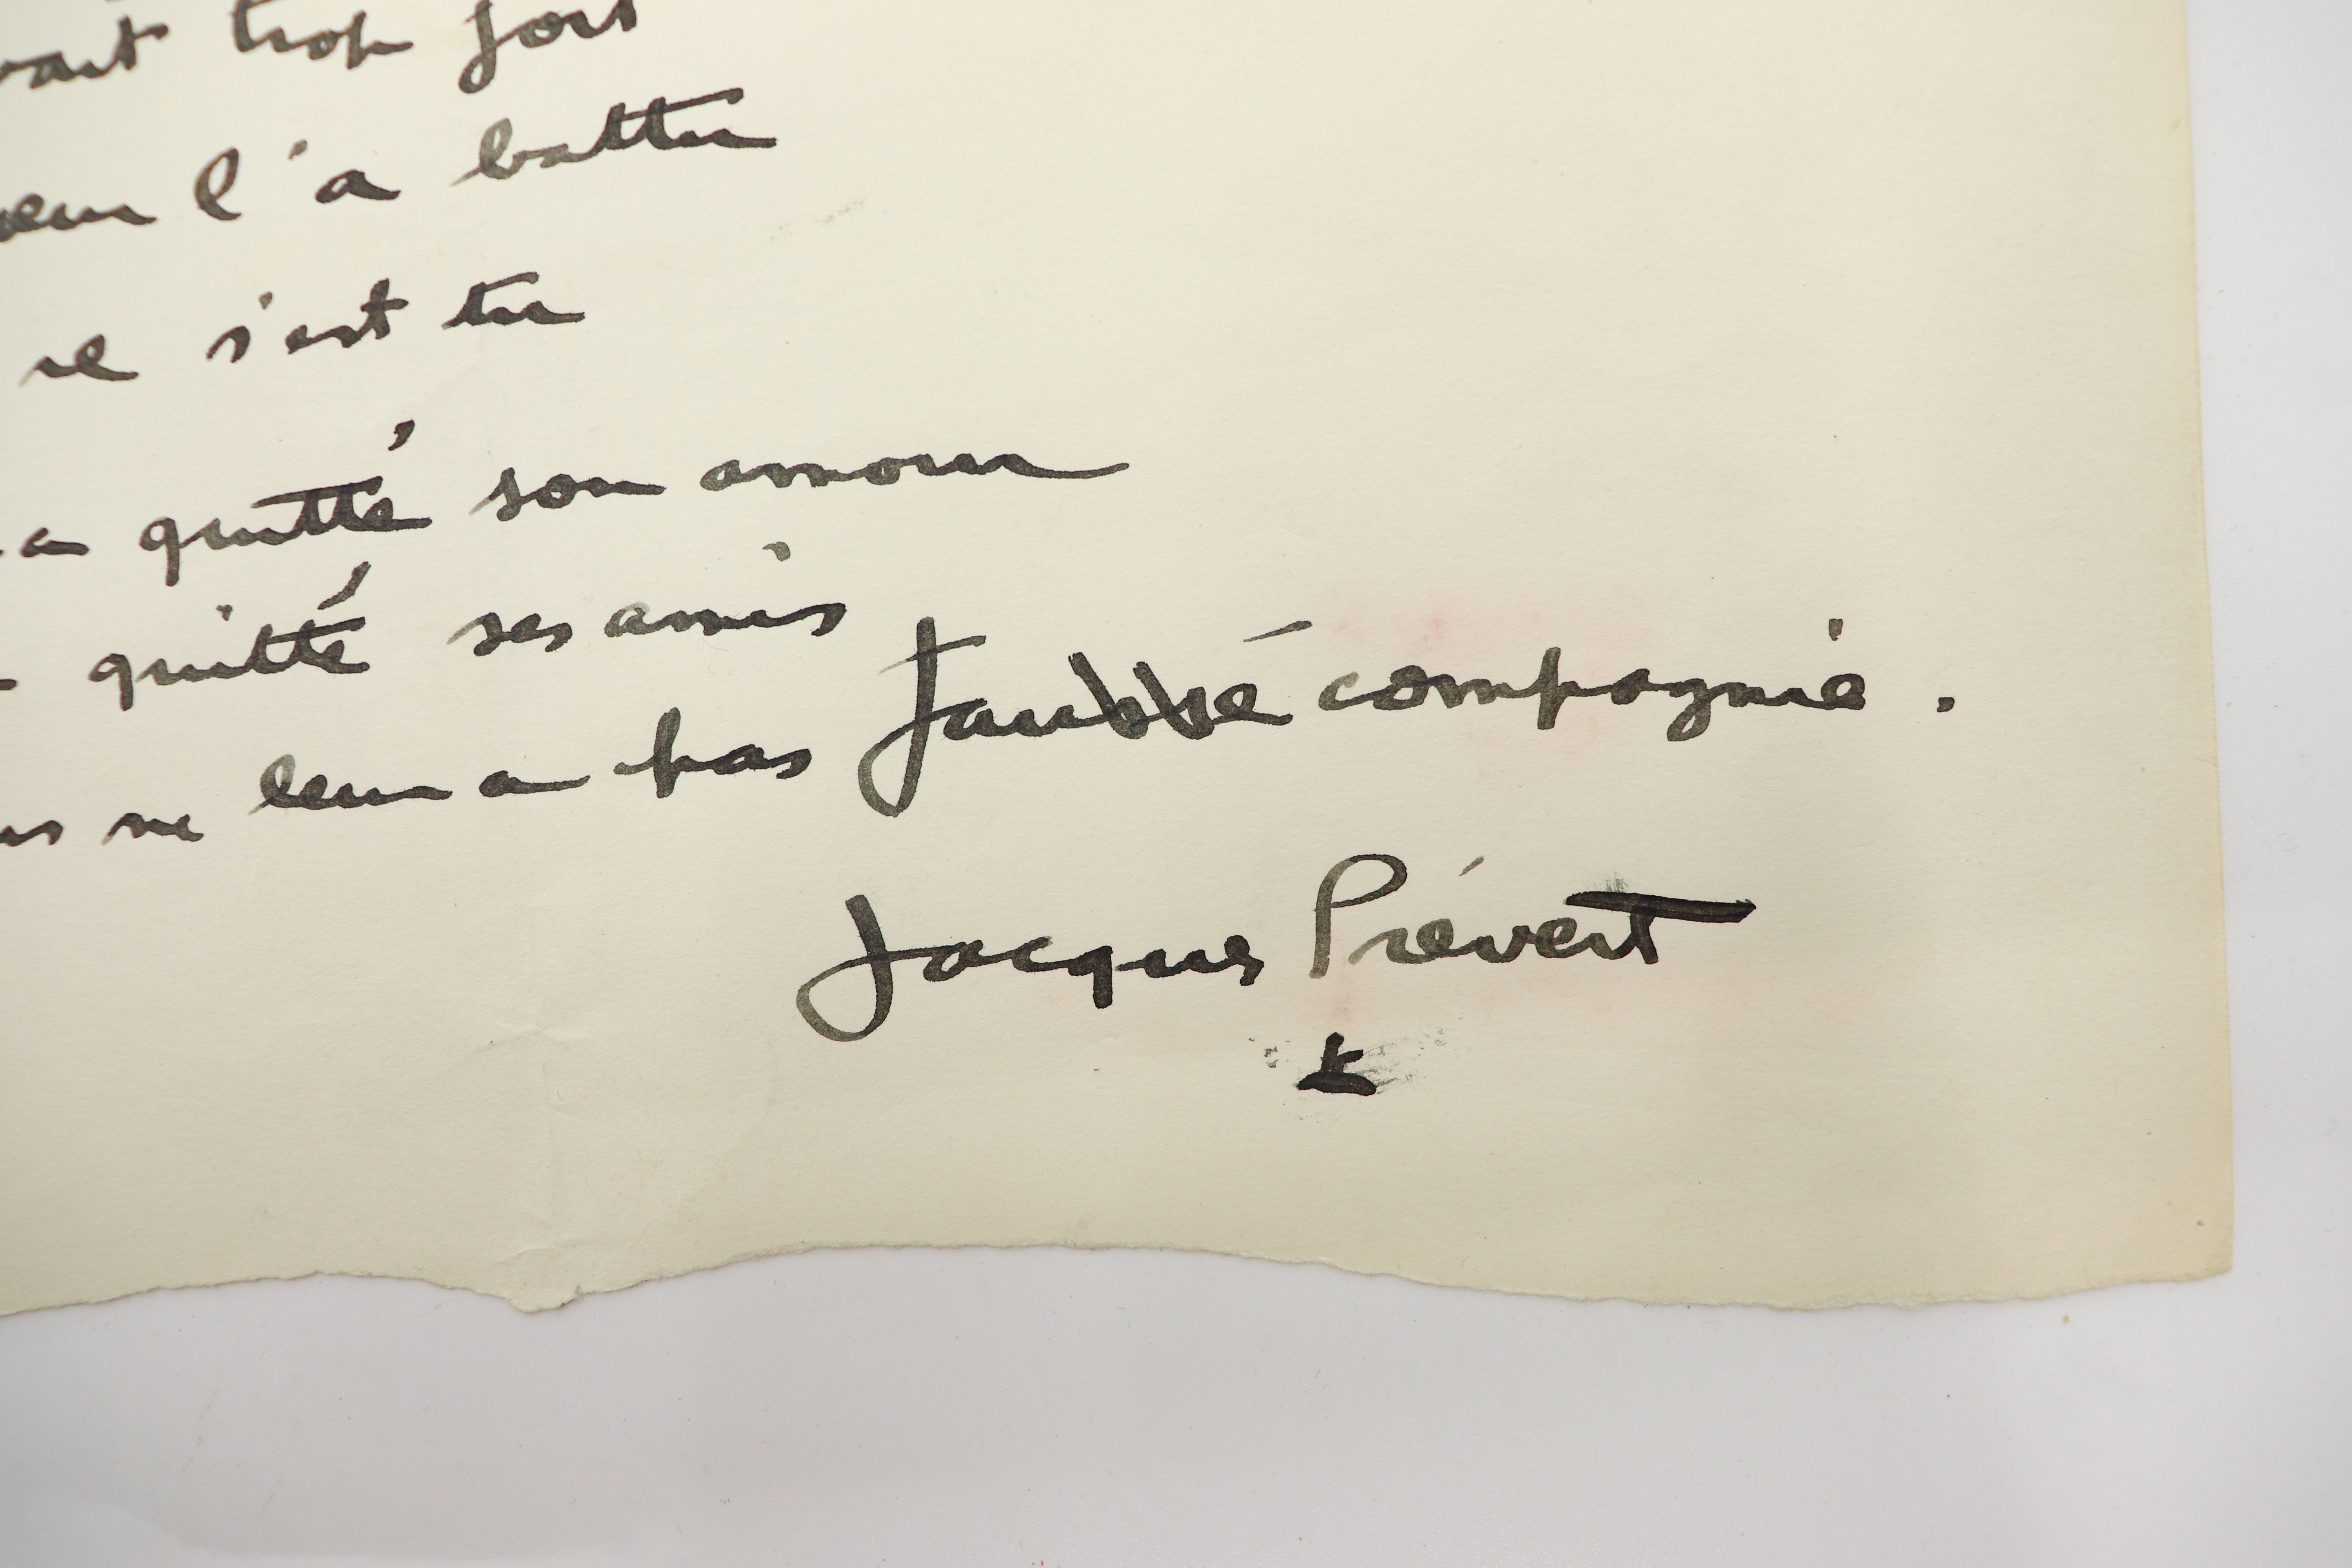 vait trop fort
œur l'a battu
il s'est tu
a quitté son amour
quitté ses amis
ne leur a pas faussé compagnie.
Jacques Prévert